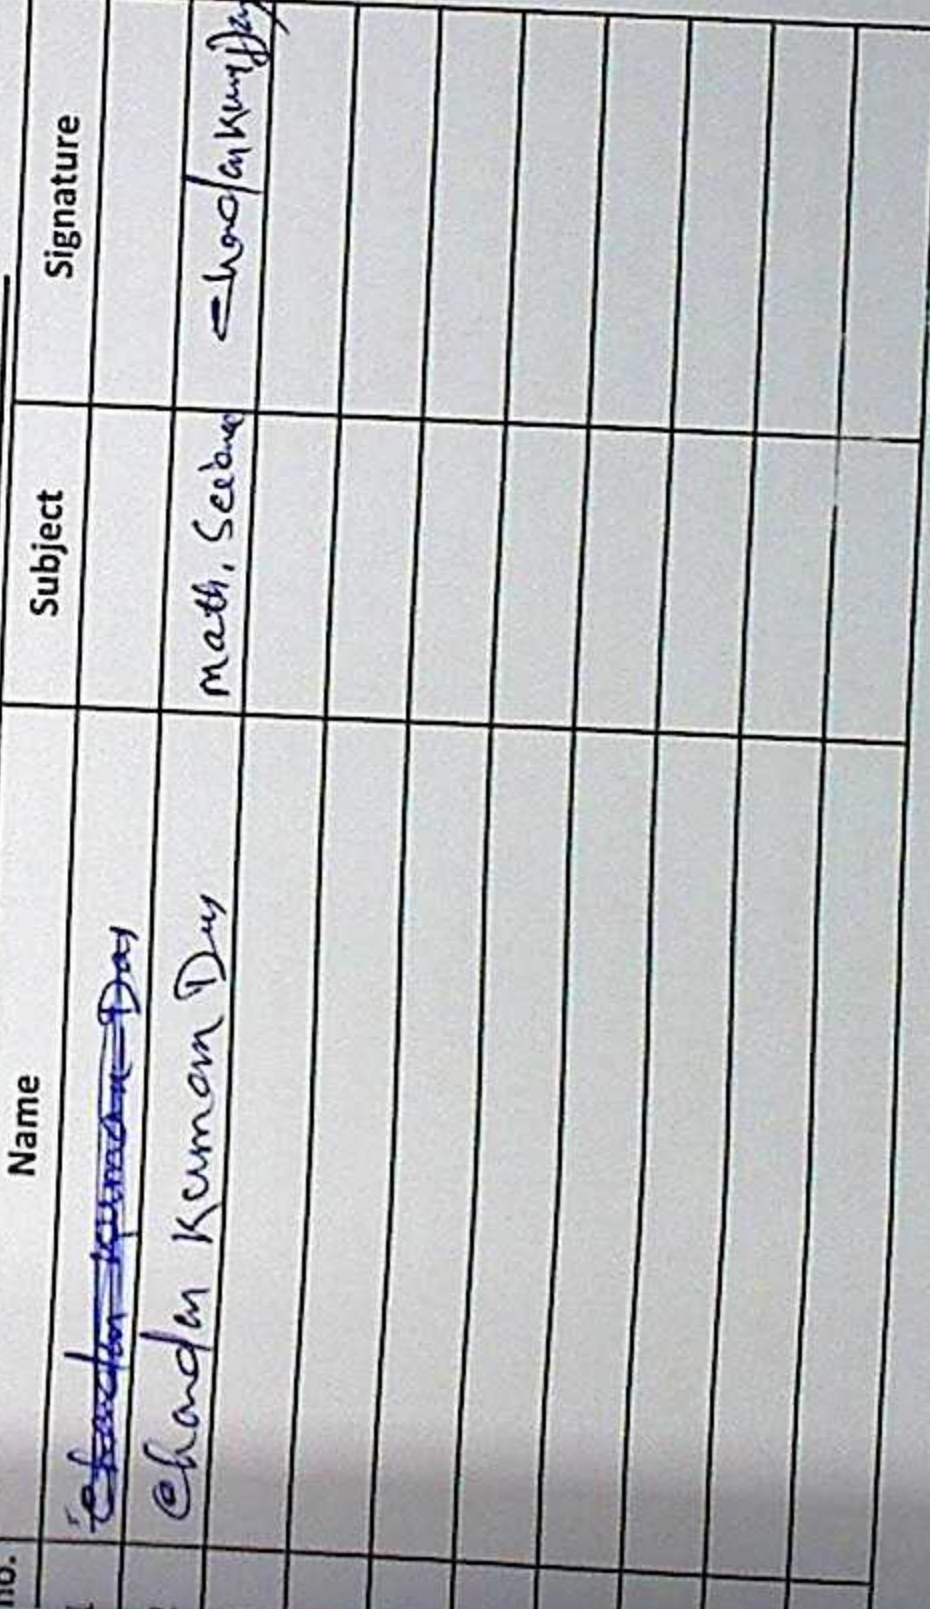 no. Name Subject Signature
1 Chandan Kumar Das
Chandan Kumar Das math, Science Chandan Kumar Das